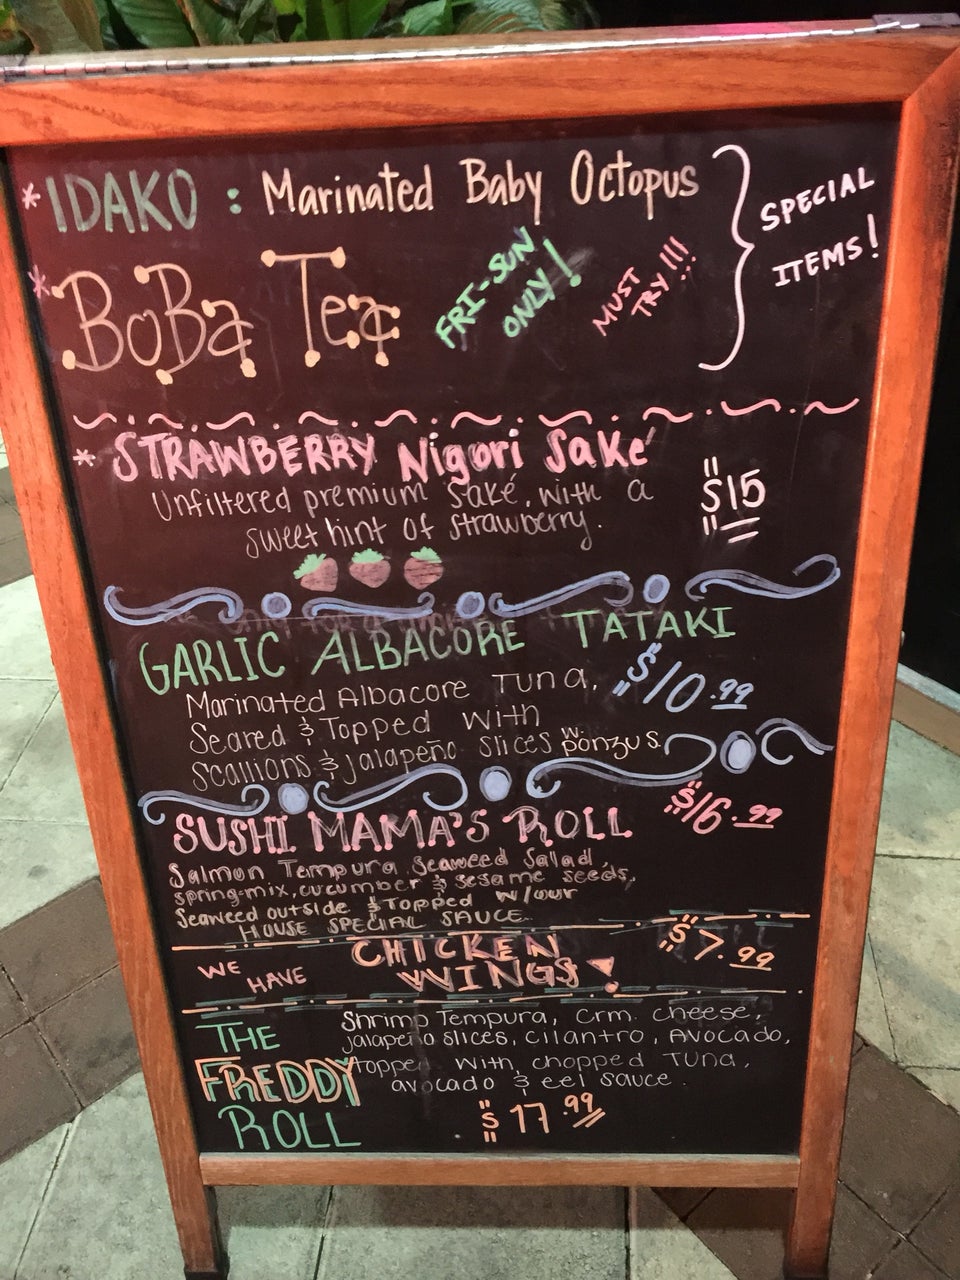 * IDAKO : Marinated Baby Octopus
* BoBa Tea
FRI-SUN
ONLY!
MUST
TRY!!!
SPECIAL
ITEMS!
* STRAWBERRY Nigori Saké
Unfiltered premium saké, with a
sweet hint of strawberry.
$15
GARLIC ALBACORE TATAKI
Marinated Albacore Tuna,
$10.99
Seared & Topped with
Scallions & jalapeño slices w. ponzu s.
SUSHI MAMA'S ROLL
$16.99
Salmon Tempura, Seaweed Salad,
spring-mix, cucumber & sesame seeds,
Seaweed outside & Topped w/our
HOUSE SPECIAL SAUCE.
WE HAVE
CHICKEN
WINGS!
$7.99
THE
FREDDY
ROLL
Shrimp Tempura, Crm. cheese,
jalapeño slices, cilantro, Avocado,
topped with chopped Tuna,
avocado & eel sauce.
$17.99